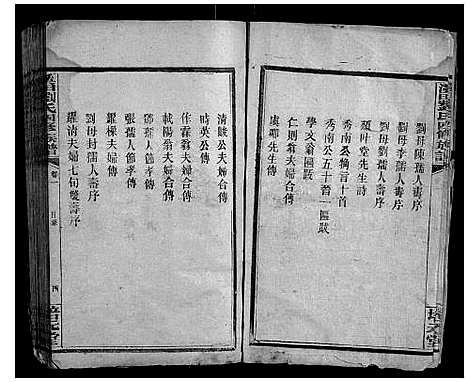 劉母陳孺人壽序
劉母李孺人壽序
劉母劉孺人壽序
題叶堂先生詩
秀南公輓言十首
秀南公五十晉一區跋
學文翁區跋
仁則翁夫婦合傳
虞卿先生傳
清畯公夫婦合傳
時英公傳
作霖翁夫婦合傳
毓陽翁夫婦合傳
鄒人節孝傳
張孺人節孝傳
耀樑夫婦傳
劉母封孺人壽序
耀清夫婦七旬雙壽序
卷一
目錄
四